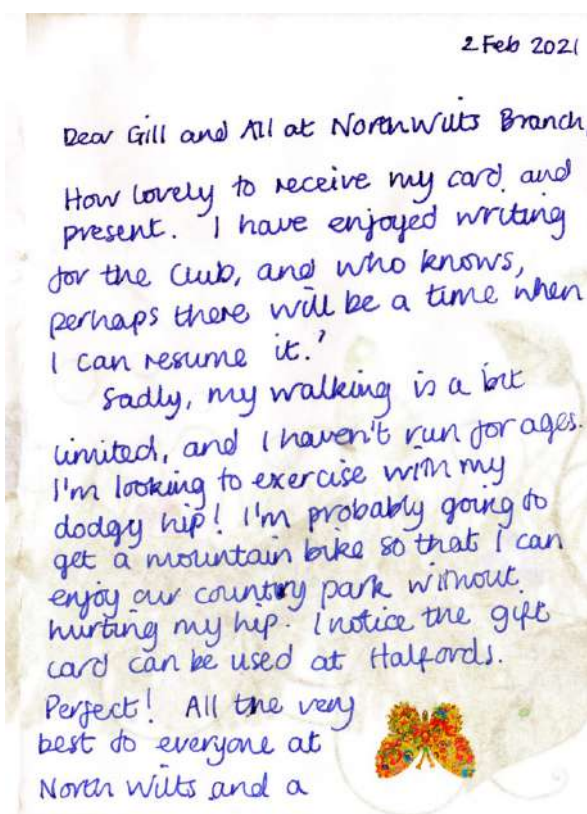 2 Feb 2021
Dear Gill and All at North Wilts Branch,
How lovely to receive my card and
present. I have enjoyed writing
for the Club, and who knows,
perhaps there will be a time when
I can resume it.'
Sadly, my walking is a bit
limited, and I haven't run for ages.
I'm looking to exercise with my
dodgy hip! I'm probably going to
get a mountain bike so that I can
enjoy our country park without
hurting my hip. I notice the gift
card can be used at Halfords.
Perfect! All the very
best to everyone at
North Wilts and a